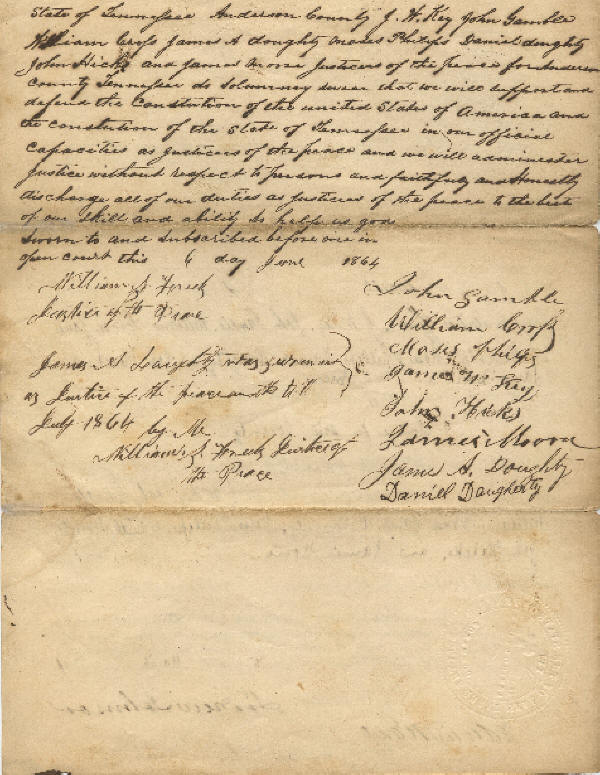 State of Tennessee Anderson County J. W. Key John Gamble
William Cross James A doughty Moses Philips Daniel doughty
John Hicks and James Moore Justicers of the peace for Anderson
County Tennessee do Solumnay swear that we will support and
defend the Constution of the united States of America and
the constution of the State of Tennessee in our official
Capacities as Justicers of the peace and we will adminester
Justice without respect to persons and faithfuly and Honestly
discharge all of our duties as Justicers of the peace to the best
of our Skill and ability So help us god
Sworn to and Subscribed before me in
open court this 6 day June 1864
William J.
Justice of the Peace
James A Daugherty was sworn in
as Justice of the peace
July 1864 by Me
William J. Justice of
the Peace
John Gamble
William Cross
Moses philips
James W Key
John Hicks
James Moore
James A. Doughty
Daniel Daugherty